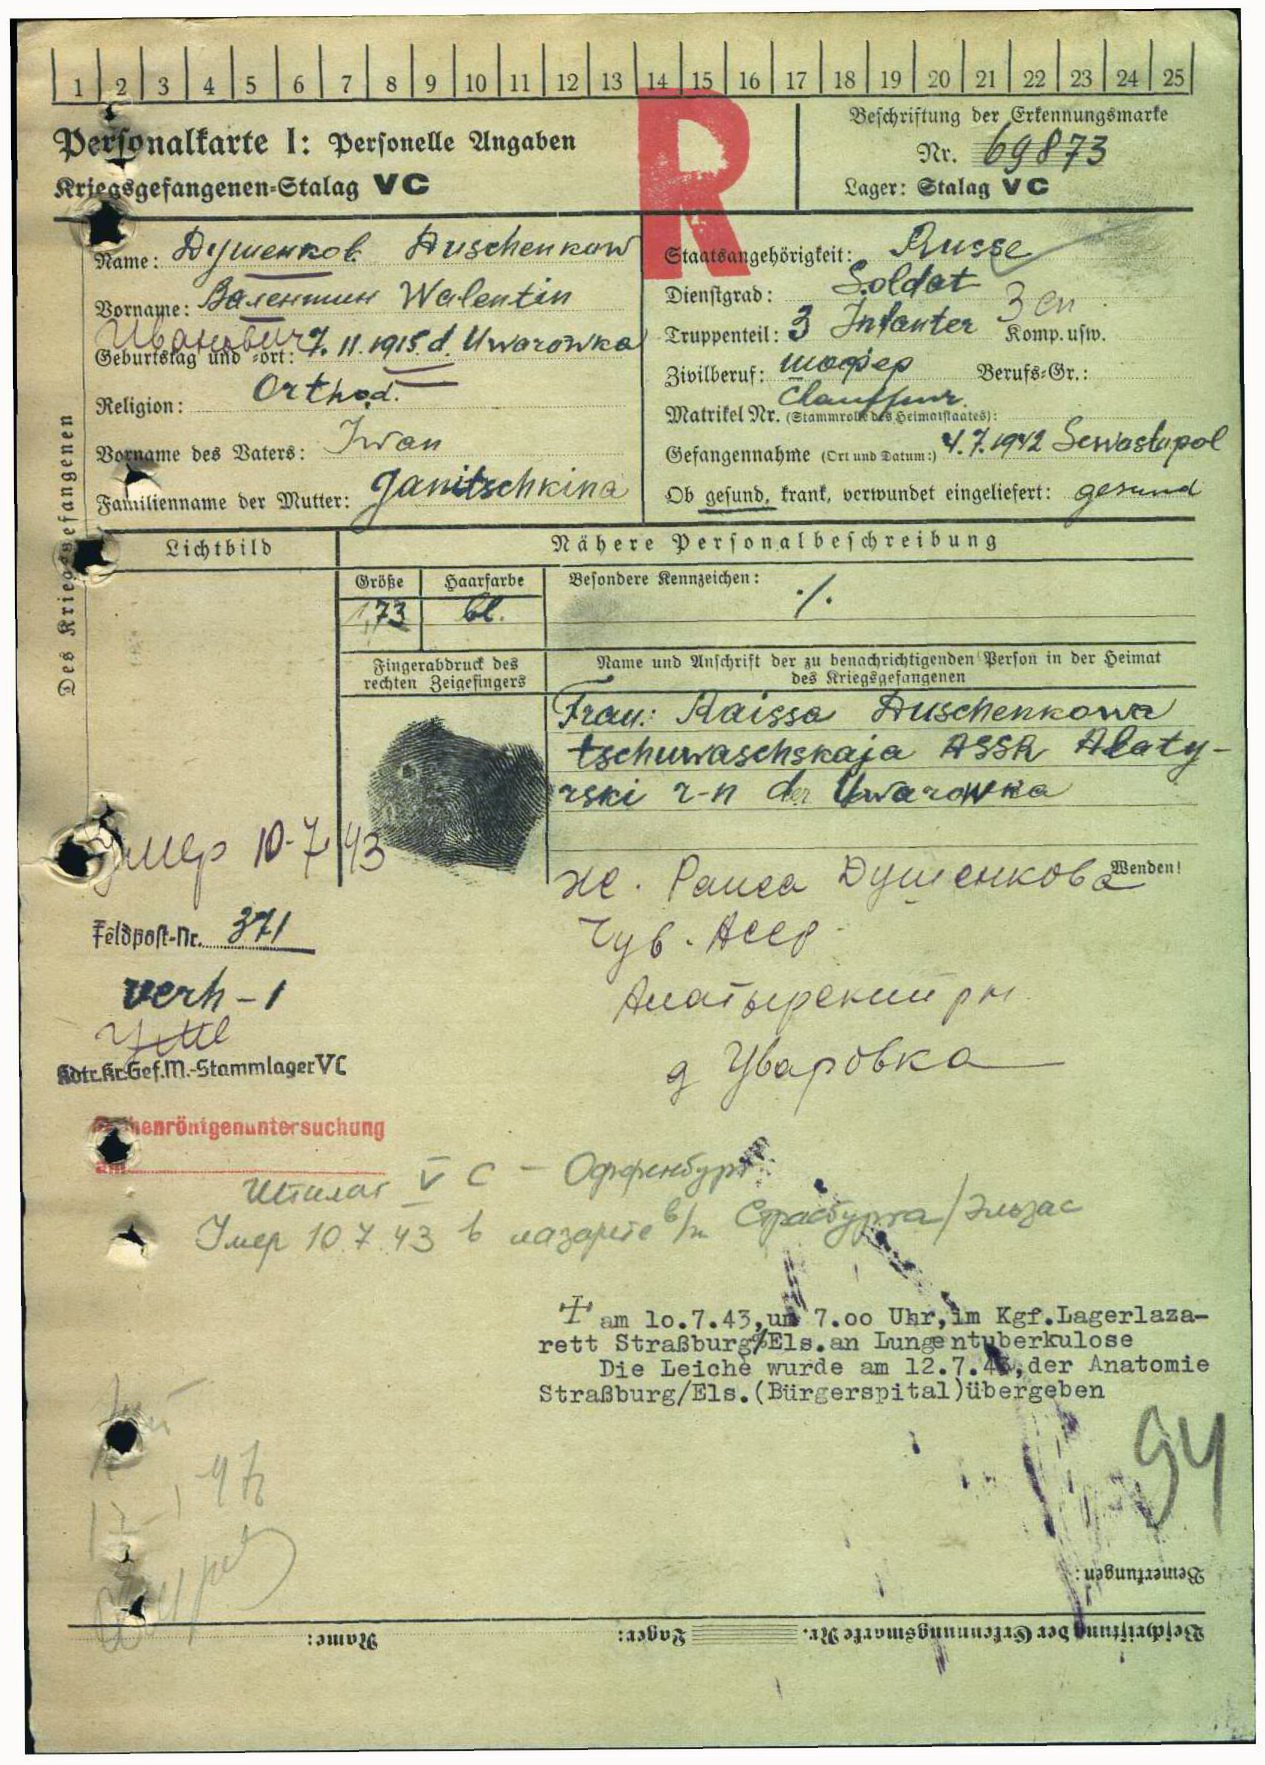 1 2 3 4 5 6 7 8 9 10 11 12 13 14 15 16 17 18 19 20 21 22 23 24 25
Personalkarte I: Personelle Angaben
Kriegsgefangenen-Stalag VC
R
Beschriftung der Erkennungsmarke
Nr. 69873
Lager: Stalag VC
Des Kriegsgefangenen
Name: Душенков Duschenkow
Vorname: Валентин Walentin
Иванович
Geburtstag und -ort: 7.11.1915 d. Uwarowka
Religion: Orthod.
Vorname des Vaters: Iwan
Familienname der Mutter: Janitschkina
Staatsangehörigkeit: Russe
Dienstgrad: Soldat
Truppenteil: 3 Infanter 3 сп Komp. usw.
Zivilberuf: шофер Berufs-Gr.:
Chauffeur
Matrikel Nr. (Stammrolle des Heimatstaates):
Gefangennahme (Ort und Datum:) 4.7.1942 Sewastopol
Ob gesund, krank, verwundet eingeliefert: gesund
Lichtbild
Nähere Personalbeschreibung
Größe Haarfarbe Besondere Kennzeichen:
1,73 bl. ./.
Fingerabdruck des
rechten Zeigefingers
Name und Anschrift der zu benachrichtigenden Person in der Heimat
des Kriegsgefangenen
Frau: Raissa Duschenkowa
tschuwaschskaja ASSR Alaty-
rski r-n der Uwarowka
Wenden!
Умер 10-7 43
ж. Раиса Душенкова
Чув. Асср
Алатырский рн
д Уваровка
Feldpost-Nr. 371
verh - 1
Kdtr. Kr.-Gef.M.-Stammlager VC
Reihenröntgenuntersuchung
am
Шталаг V C - Оффенбург
Умер 10.7.43 в лазарете в/п Страсбурга/Эльзас
am 10.7.43,um 7.00 Uhr,im Kgf.Lagerlaza-
rett Straßburg/Els.an Lungentuberkulose
Die Leiche wurde am 12.7.43,der Anatomie
Straßburg/Els.(Bürgerspital)übergeben
94
Bemerkungen:
Beschriftung der Erkennungsmarke Nr. Lager: Name: